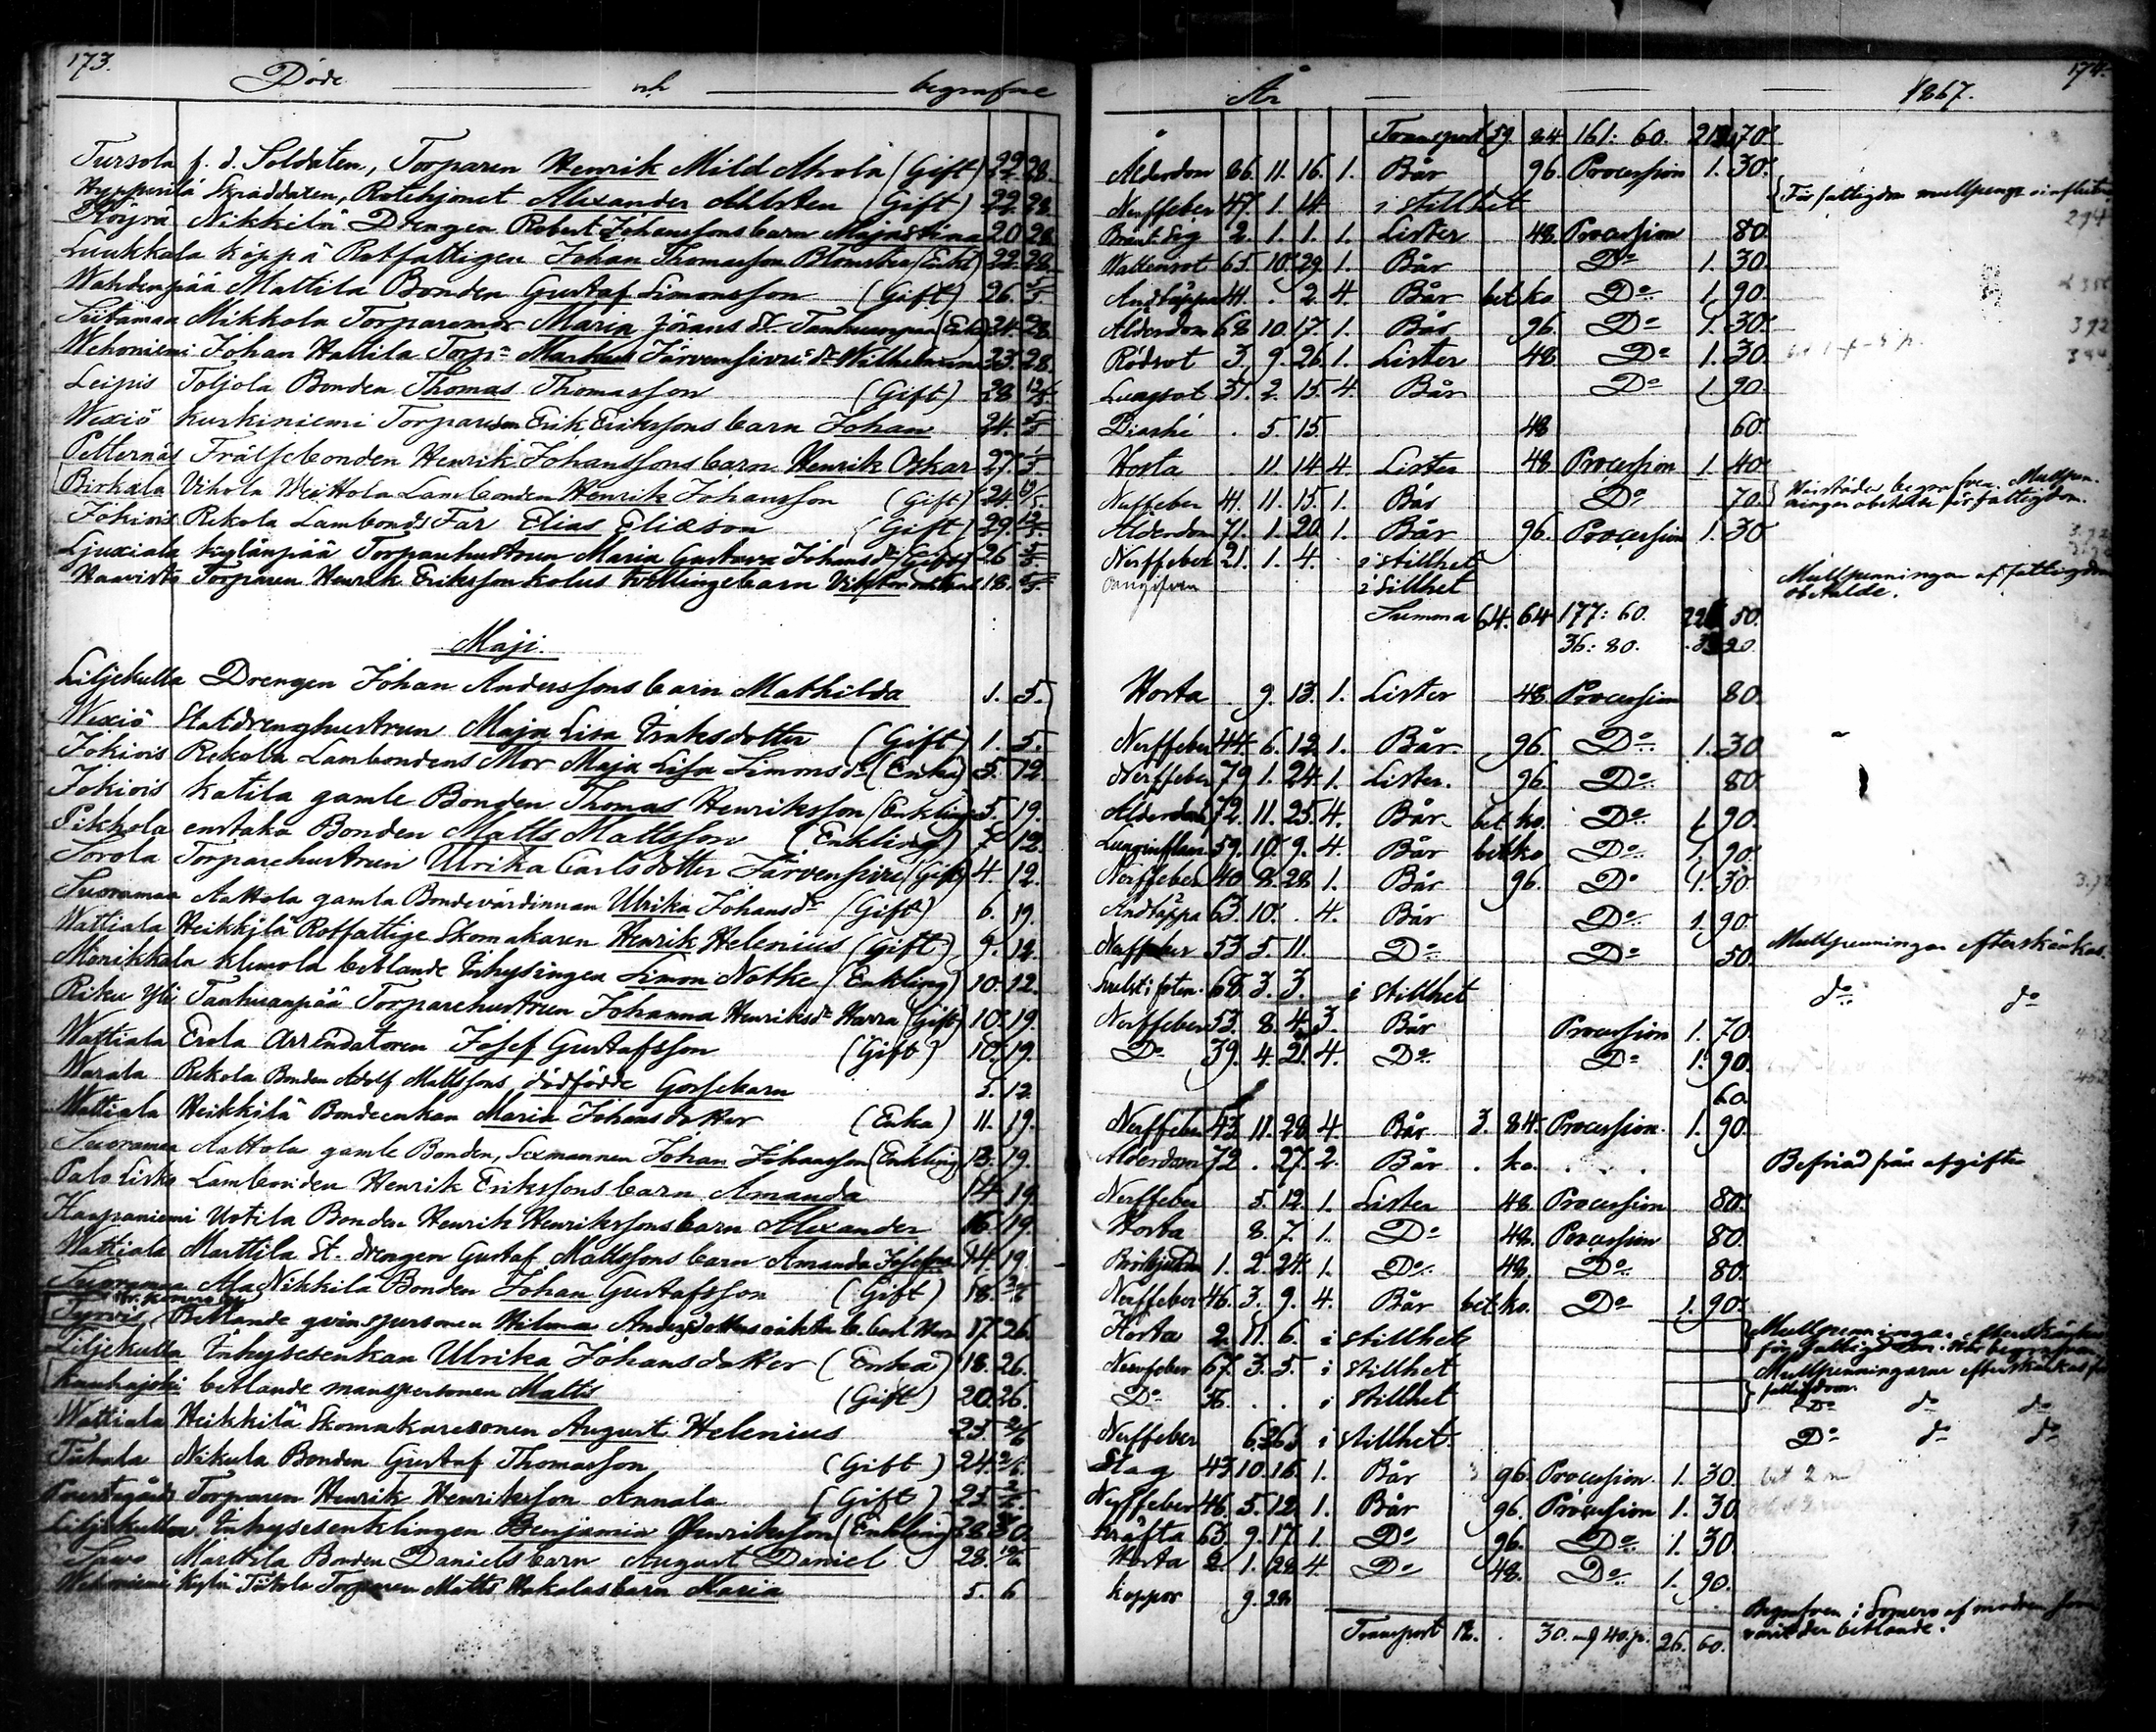 173.
Döde och begrafne
Tursola f. d. Soldaten, Torparen Henrik Mild Ahola (Gift) 22. 28.
Hypperilä Skräddaren, Rotehjonet Alexander Ahlsten (Gift) 22. 28.
Köijoa Nikkilä Drengen Robert Johanssons barn Maja Stina 20 28
Luukkala Köppä Rotfattigen Johan Thomasson Blomster (Enkl) 22. 28.
Wahdenpää Mattila Bonden Gustaf Simonsson (Gift) 26. 5/5
Siitamaa Mikkola Torparemor Maria Jörans dr. Tanhuanpää (Enka) 24. 28
Wehoniemi Johan Hattila Torp. Markus Järvensivus dr Wilhelmina 23. 28.
Leipis Toljola Bonden Thomas Thomasson (Gift) 28 12/5
Wexiö Kurkiniemi Torparen Erik Erikssons barn Johan 24. 5/5
Petternäs Frälsebonden Henrik Johanssons barn Henrik Oskar 27. 5/5.
Birkala Vihola Meittola Lambonden Henrik Johansson (Gift) 24.
Jokiois Rekola Lambonds Far Elias Eliæson (Gift) 29. 12/5.
Ljuxiala Kylänpää Torparehustrun Maria Gustava Johans dr (Gift) 26 5/5
Haavisto Torparen Henrik Eriksson Kolus tvillingebarn 18. 5/5.
Maji.
Liljekulla Drengen Johan Anderssons barn Mathilda 1. 5.
Wexiö Statdrenghustrun Maja Lisa Eriksdotter (Gift) 1. 5.
Jokiois Rekola Lambondens Mor Maja Lisa Simons dr (Enka) 5. 12
Jokiois Katila gamle Bonden Thomas Henriksson (Enkling) 5. 19.
Pikkola enstaka Bonden Matts Mattsson (Enkling) 7. 12.
Sorola Torparehustrun Ulrika Carlsdotter Järvensivu (Gift) 4. 12.
Suoramaa Aattola gamla Bondevärdinnan Ulrika Johans dr (Gift) 6. 19.
Wattiala Heikkilä Rotfattige Skomakaren Henrik Helenius (Gift) 9. 12.
Mönikkala Klemola betlande Inhysingen Simon Notke (Enkling) 10. 12.
Riku Yli Tanhuanpää Torparehustrun Johanna Henriks dr Harra (Gift) 10. 19.
Wattiala Erola Arrendatoren Josef Gustafsson (Gift) 10. 19.
Warala Rekola Bonden Adolf Mattssons dödfödde Gossebarn 5. 12.
Wattiala Heikkilä Bondeenkan Maria Johansdotter (Enka) 11. 19.
Suoramaa Aattola gamle Bonden, Sexmannen Johan Johansson (Enkling) 13. 19.
Palo Lisko Lambonden Henrik Erikssons barn Amanda 14. 19.
Haapaniemi Uotila Bonden Henrik Henrikssons barn Alexander 16. 19.
Wattiala Marttila St. drengen Gustaf Mattssons barn Amanda Josefina 14. 19.
Suoramaa Ala Nikkilä Bonden Johan Gustafsson (Gift) 18.
Tyrvis, Betlande qvinspersonen Hilma Andersdotters oäkta b. Carl 17. 26.
Liljekulla Inhysesenkan Ulrika Johansdotter (Enka) 18. 26.
Kauhajoki betlande manspersonen Matts (Gift) 20. 26.
Wattiala Heikkilä Skomakaresonen August Helenius 23. 2/6
Tiihala Nikula Bonden Gustaf Thomasson (Gift) 24. 2/6.
Torparen Henrik Henriksson Annala (Gift) 25. 2/6.
Liljekulla Inhysesenklingen Benjamin Henriksson (Enkling) 28. 30.
Sawo Marttila Bonden Daniels barn August Daniel 28.
Wehoniemi Kylä Tiitola Torparen Matts Hakalas barn Maria 5. 6
174.
År 1867.
Transport 59. 84 161: 60. 70.
Ålderdom 86. 11. 16. 1. Bår 96. Procession 1. 30.
Nerffeber 47. 1. 14. i stillhet För fattigdom mullpenge
Brånt sig 2. 1. 1. 1. Lister 48. Procession 80.
Wattensot 65. 10. 29. 1. Bår Do 1. 30.
Andtäppa 41. . 2. 4. Bår bet ko Do 1. 90.
Ålderdom 68 10. 17. 1. Bår 96. Do 1. 30.
Rödsot 3. 9. 26. 1. Lister 48. Do 1. 30.
Lungsot 37. 2. 15. 4. Bår Do 1. 90.
. 5. 15. 48 60.
Hosta 11. 14. 4. Lister 48. Procession 1. 40.
Nerffeber 41. 11. 15. 1. Bår Do 70. Härstädes begrafven. Mullpen-
ningar obetalte för fattigdom.
Ålderdom 71. 1. 20. 1. Bår 96. Procession 1. 30
Nerffeber 21. 1. 4. i stillhet
Oangifven i stillhet Mullpenningar af fattigdom
obetalde.
Summa 64. 64 177: 60. 50.
36: 80. 20.
Hosta . 9. 13. 1. Lister 48. Procession 80.
Nerffeber 44. 6. 12. 1. Bår 96. Do 1. 30
Nerffeber 79. 1. 24. 1. Lister. 96. Do 80.
Ålderdom 72. 11. 25. 4. Bår bet. ko. Do 1. 90.
Lunginflam 59. 10. 9. 4. Bår bet ko Do 1. 90.
Nerffeber 40 8. 28 1. Bår 96. Do 1. 30
Andtäppa 63. 10. . 4. Bår Do 1. 90.
Nerffeber 53 5. 11. Do Do 50. Mullpenningar efterskänkas.
68 3. 3. i stillhet do do
Nerffeber 53. 8. 4. 3. Bår Procession 1. 70.
Do 39. 4. 21. 4. Do Do 1. 90.
60.
Nerffeber 43. 11. 28. 4. Bår 3. 84. Procession. 1. 90.
Ålderdom 72. . 27. 2. Bår . ko. Befriad från afgifter
Nerffeber 5. 12. 1. Lister 48 Procession 80.
Hosta 8. 7. 1. Do 48. Procession 80.
1. 2. 24. 1. Do 48. Do 80.
Nerffeber 46. 3. 9. 4. Bår bet ko. Do 1. 90.
Hosta 2. 11. 6. i stillhet Mullpenningar efterskänkas
för fattigdom. Här begrafven
Nerffeber 67. 3. 5. i stillhet Mullpenningarne efterskänkas för
fattigdom.
Do 36. . . i stillhet Do do do
Nerffeber i stillhet. Do do do
Slag 43. 10. 16. 1. Bår 96. Procession. 1. 30.
Nerffeber 46. 5. 12. 1. Bår 96. Procession 1. 30.
Kräfta 63. 9. 17. 1. Do 96. Do 1. 30.
Hosta 2. 1. 28 4. Do 48. Do 1. 90.
Koppor 9. 28 Begrafven i Somero af modren som
varit der betlande.
Transport 12. . 30. m 40. p. 26. 60.